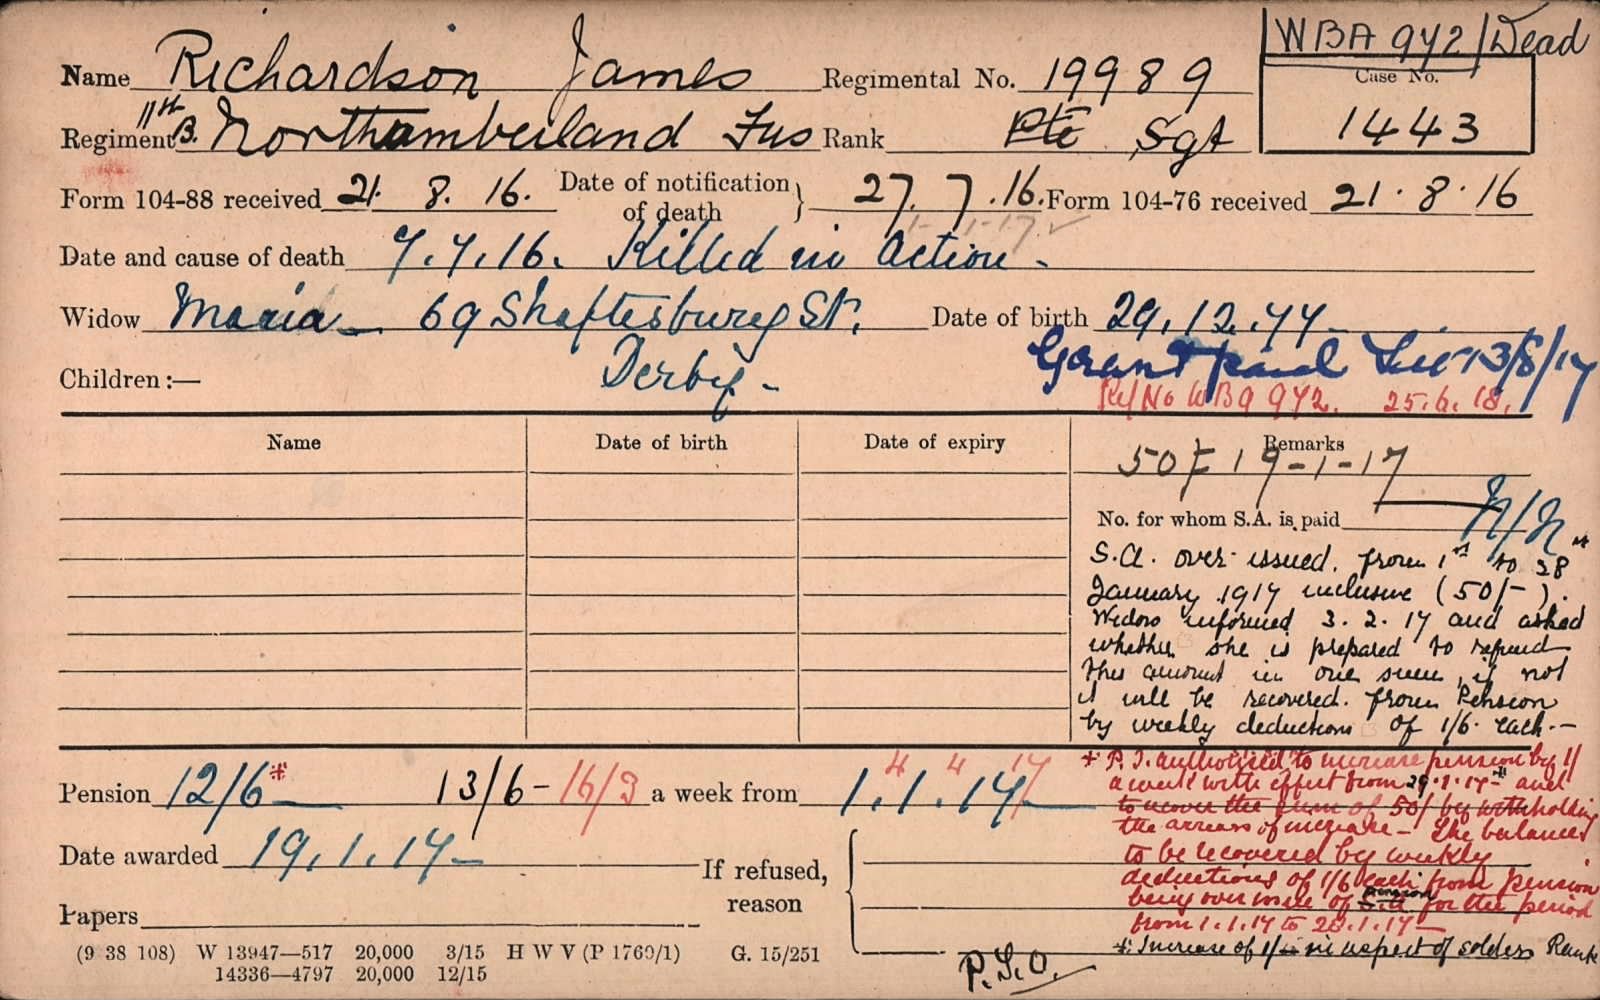 WBA 942/Dead
Name Richardson James Regimental No. 19989
Case No. 1443
Regiment 11th B. Northumberland Fus Rank Pte Sgt
Form 104-88 received 21. 8. 16. Date of notification of death } 27. 7. 16. Form 104-76 received 21. 8. 16
1-1-17 ✓
Date and cause of death 7.7.16. Killed in Action -
Widow Maria 69 Shaftesbury St. Date of birth 29.12.77
Children :— Derby - Grant paid 13/8/17
Ref/No WBA 942. 25.6.18.
Name Date of birth Date of expiry Remarks
50F 19-1-17
No. for whom S.A. is paid N/N
S.A. over issued from 1st to 28th
January 1917 inclusive (50/-).
Widow informed 3.2.17 and asked
whether she is prepared to refund
this amount in one sum, if not
it will be recovered from Pension
by weekly deductions of 1/6 each.-
Pension 12/6* 13/6 - 16/3 a week from 1.1.17 4 4 17
Date awarded 19.1.17
If refused, reason
Papers
* P.I. authorised to increase pension by 1/
a week with effect from 29.1.17 * and
to recover the sum of 50/ by withholding
the arrears of increase - The balance
to be recovered by weekly
deductions of 1/6 each from pension
being over issue of S.A. pension for the period
from 1.1.17 to 28.1.17 -
*: Increase of 1/- in respect of soldiers Rank
P.I.O.
(9 38 108) W 13947—517 20,000 3/15 H W V (P 1760/1) G. 15/251
14336—4797 20,000 12/15